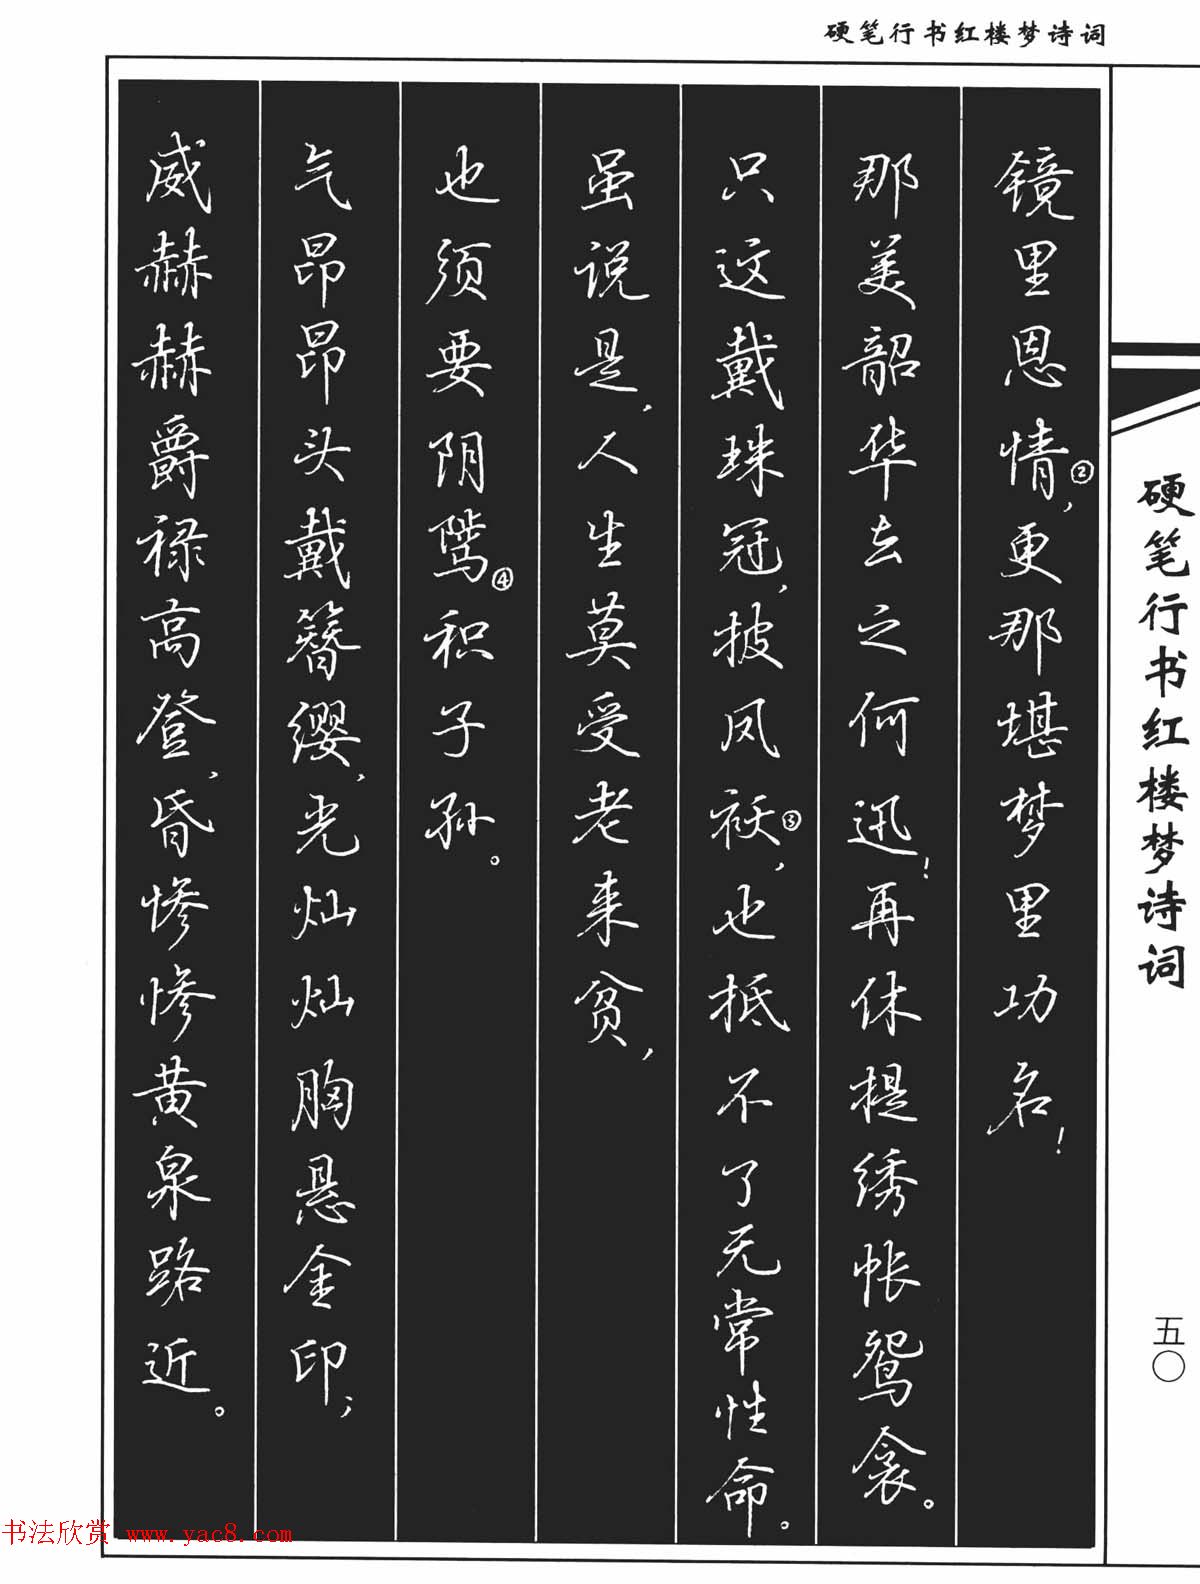 硬笔行书红楼梦诗词
镜里恩情②，更那堪梦里功名！
那美韶华去之何迅！再休提绣帐鸳衾。
只这戴珠冠，披凤袄③，也抵不了无常性命。
虽说是，人生莫受老来贫，
也须要阴骘④积子孙。
气昂昂头戴簪缨，光灿灿胸悬金印；
威赫赫爵禄高登，昏惨惨黄泉路近。
硬笔行书红楼梦诗词
五〇
书法欣赏 www.yac8.com